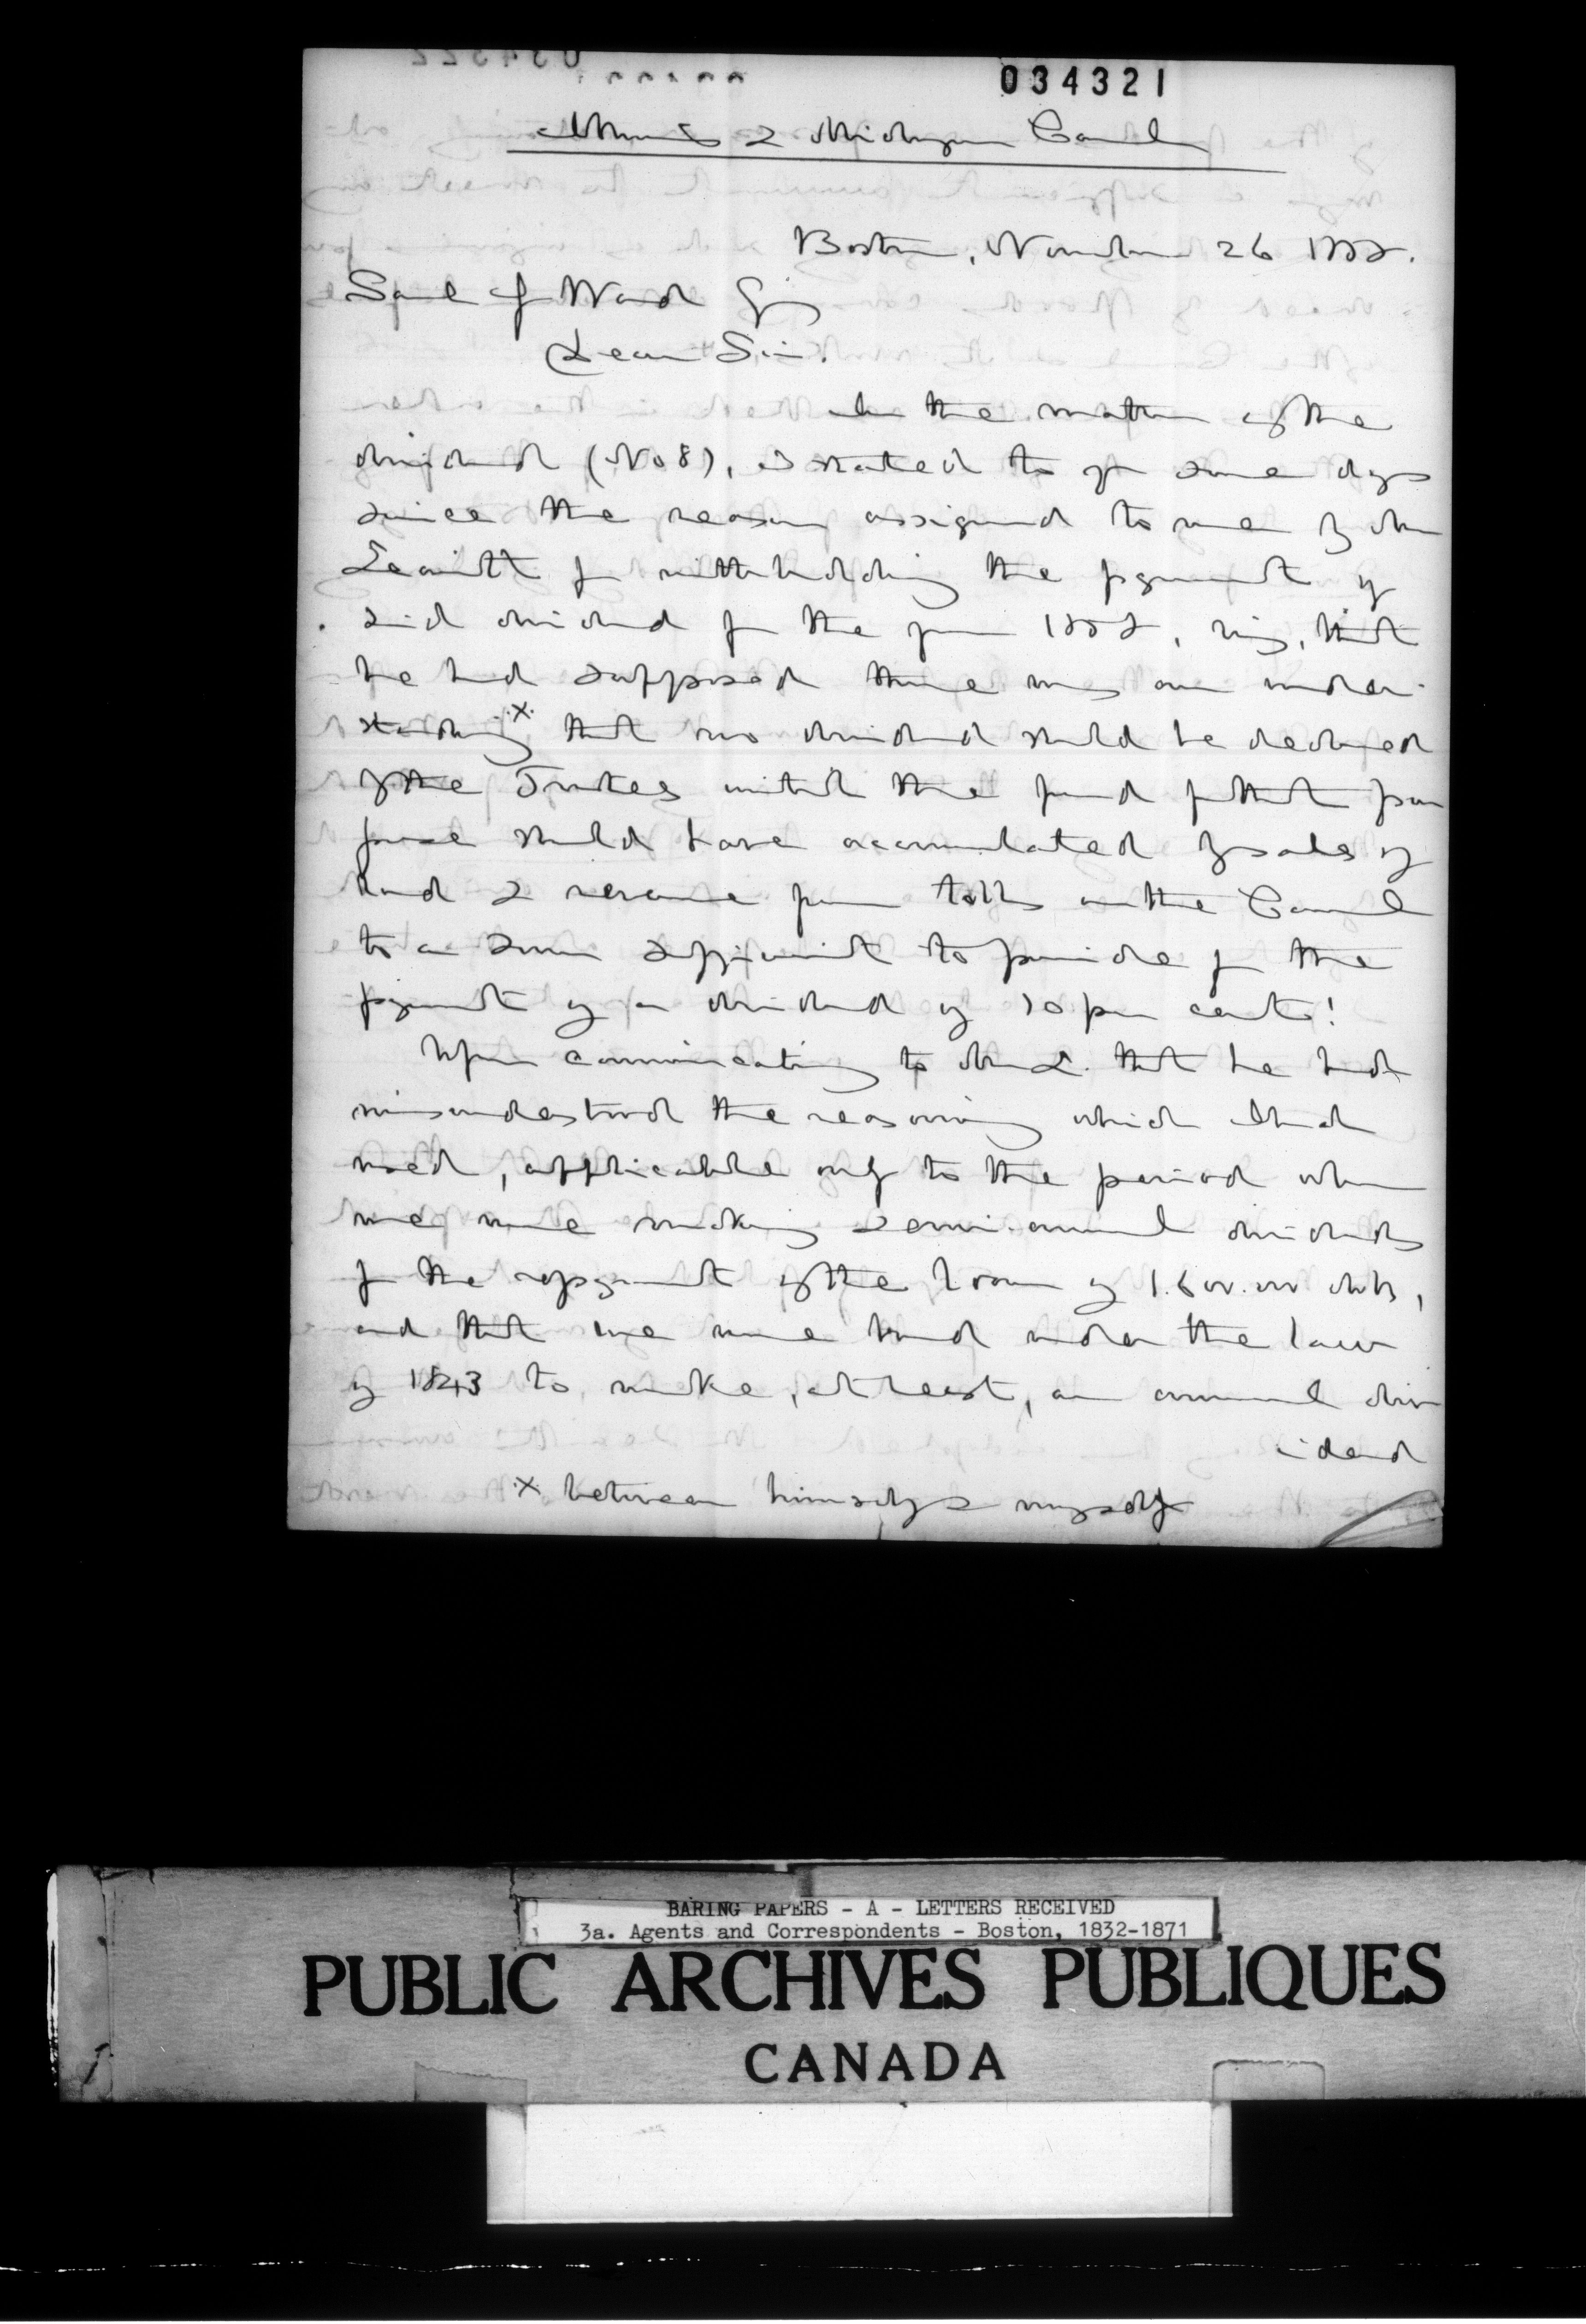 034321
Illinois & Michigan Canal
Boston, November 26 1855.
Saml G Ward Esq
Dear Sir.
In the matter of the
dividend (No 8), I stated to you some days
since the reason assigned to me by Mr
Leavitt for withholding the payment of
said dividend for the year 1855, viz, that
he had supposed there was an under-
standing x that no dividend should be declared
by the Trustees until the fund for that pur
pose should have accumulated by sales of
land & revenue from tolls on the Canal
to a sum sufficient to provide for the
payment of a dividend of 10 per cent!
Upon communicating to Mr L. that he had
misunderstood the reasoning which I had
used, applicable only to the period when
we were making semi-annual dividends
for the repayment of the loan of 1.600.000 dolls,
and that we were bound under the law
of 1843 to make, at least, an annual div
idend
x between himself & myself
BARING PAPERS - A - LETTERS RECEIVED
3a. Agents and Correspondents - Boston, 1832-1871
PUBLIC ARCHIVES PUBLIQUES
CANADA